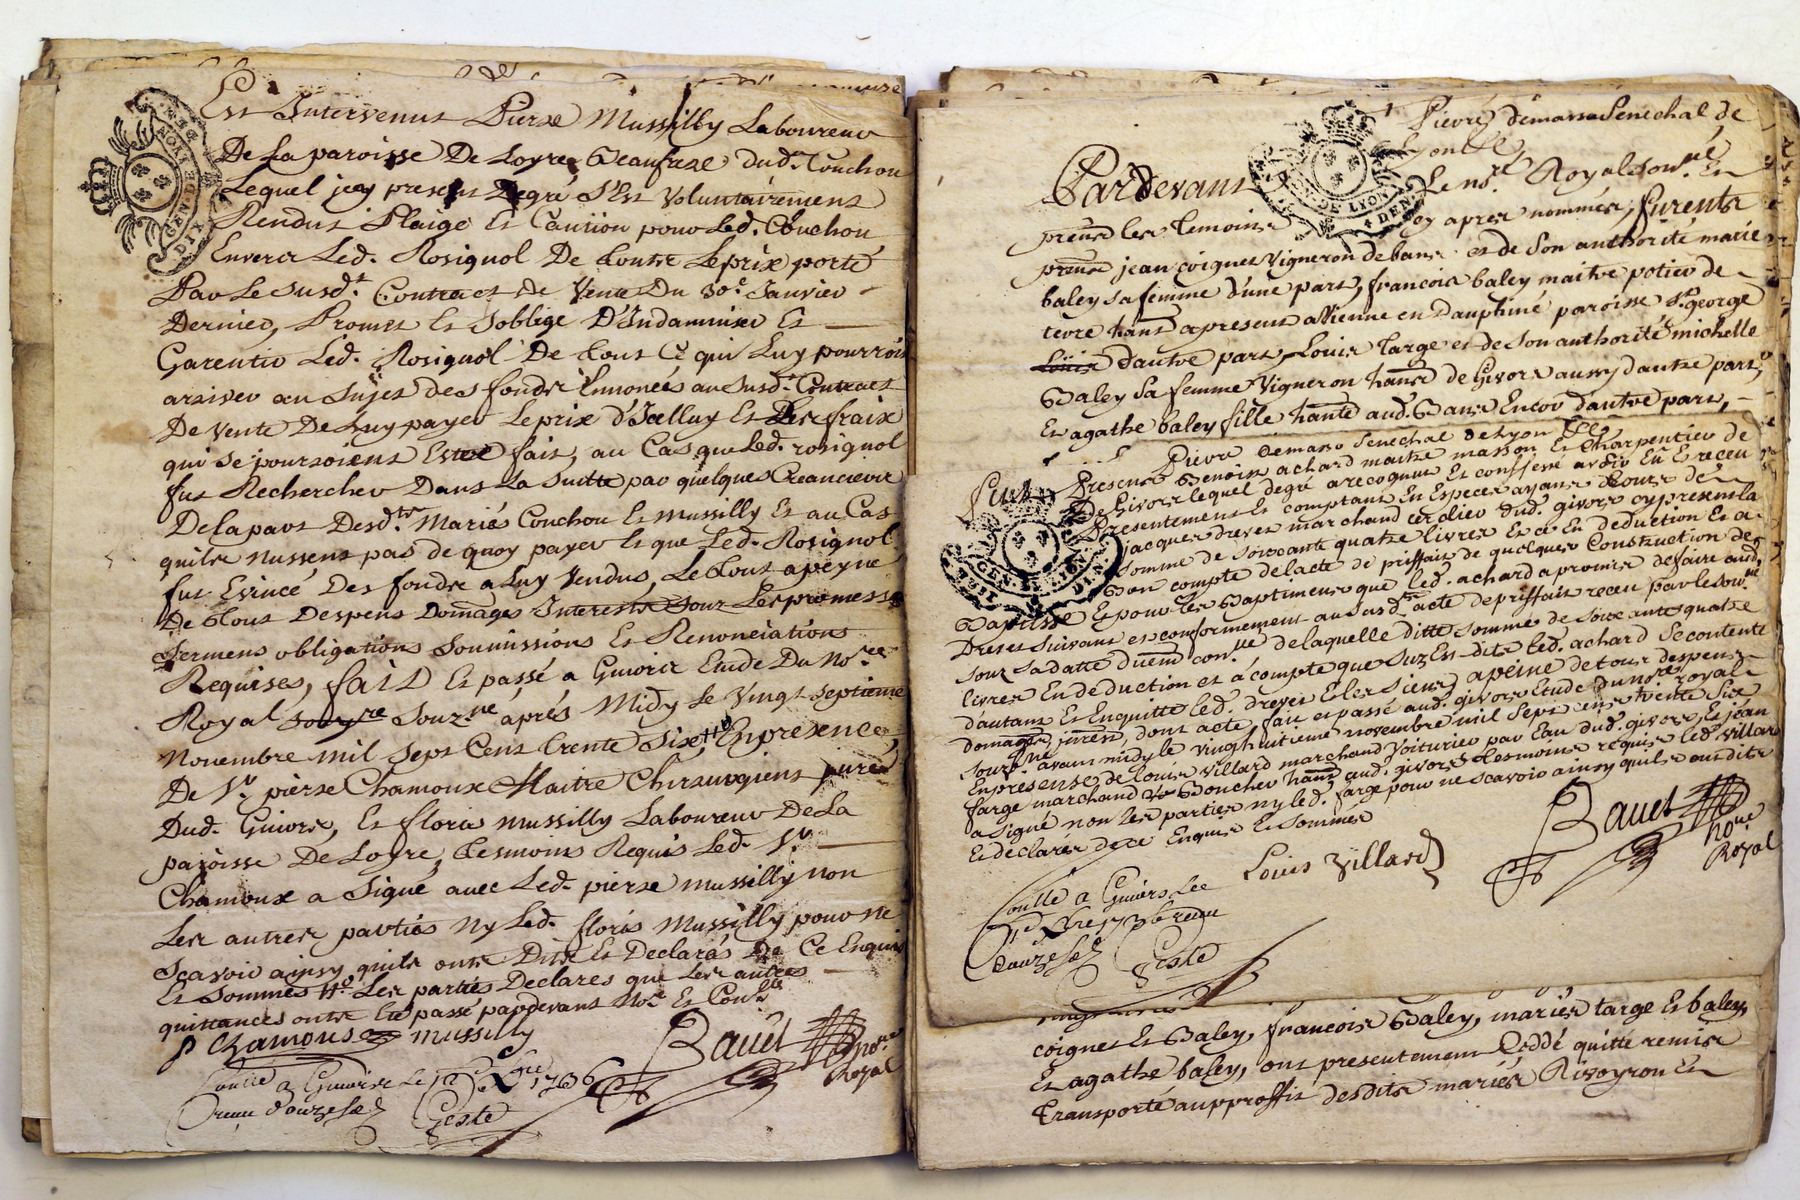 Est Intervenus Pierre Mussilly Laboureur
De La paroisse De Loyre Beaufrere dud. Couchou
Lequel icy present Degré S'Est Volontairement
Rendus Plaige Et Caution pour Led. Couchou
Envers Led. Rosignol De toutte Le prix porté
Par Le susd.t Contract de Vente Du 30.e Janvier
Dernier, Promet Et Soblige D'Indamniser Et
Garentir Led. Rosignol De tout Ce qui Luy pourroit
arriver au Sujet des fondz Ennoncés au susd.t Contract
De Vente De Luy payer Le prix d'Icelluy Et Les fraix
qui se pourroient Estre fait, au Cas que Led. rosignol
fut Rechercher Dans La Suitte par quelques Creanciers
De la part Desd.ts Mariés Couchou Et Mussilly Et au Cas
quils nussent pas de quoy payer Et que Led. Rosignol
fut Evincé Des fondz a Luy Vendus, Le tout a peyne
De tous Despens Domages Interests sour Les promesse
Serment obligations Soumissions Et Renonciations
Requises, fait Et passé a Givors Etude Du No.re
Royal Souz.né après Midy Le Vingt septieme
Novembre mil sept Cent trente six, En presence
De S.r pierre Chamoux Maitre Chirurgient juré
Dud. Givors, Et floris mussilly Laboureur De La
paroisse De Loyre, tesmoins Requis Led. S.r
Chamoux a Signé avec Led. pierre mussilly non
Les autres parties Ny Led. floris Mussilly pour ne
Scavoir ainsy quils ont Dit Et Declarés De Ce Enquis
Et Sommés Les parties Declares que Les autres
quittances ont Eté passé pardevant No.re Et Con.lle
P Chamous mussilly
Bauet no.re
Royal
Contlle a Givors Le 1736
receu douze s.
Geste
GEN DE LYON
DIX DEN
Pierre démarra Senechal de
Lyon
Pardevant Le no.re Royal sou.né Et
DE LYON
DEN
presents les temoins cy apres nommés, furents
present jean coignet vigneron de bans et de son authorité marie
baley sa femme d'une part, francois baley maitre potier de
terre hant apresent a Vienne en Dauphiné paroisse S.t george
Louis d'autre part, Louis targe et de son authorité michelle
Baley Sa femme Vigneron hant de Givors aussy d'autre part,
Et agathe baley fille hante aud. Bans Encor d'autre part,
Pierre Demarra Senechal de Lyon
Present Benoist achard maitre masson Et Charpentier de
Givors lequel degré a recognut Et confessé avoir Eu Et receu
presentement Et comptant En Especes ayant Cours de
jacques drevet marchand cordier dud. givors cy present la
somme de soixante quatre livres Et ce En deduction Et a
Bon compte de l'acte de priffait de quelques Construction de
Batisse Et pour les Baptiments que led. achard a promis de faire aud.
Drevet suivant et conformement au susd. acte de priffait receu par le sou.né
sour sa datte duement con.lle de laquelle ditte somme de soixante quatre
livres En deduction et à compte que Suz Est dite led. achard se contente
d'autant Et Enquitte led. drevet Et les Siens apeine de tous despens
domages interest, dont acte, fait et passé aud. givors Etude du no.re royal
souz.né avant midy le vingt huitieme novembre mil sept cent trente six
En presense de Louis Villard marchand Voiturier par Eau dud. givors, Et jean
farge marchand Boucher hant aud. givors tesmoins requis led. Villard
a signé non les parties ny led. farge pour ne scavoir ainsy quils ont dits
Et declarer de ce Enquis Et Sommés
GEN DE LYON
DIX DEN
Louis Villard
Bauet
no.re
Royal
Contlle a Givors Le
receu
douze s.
Geste
coignet Et Baley, francois Baley, mariés targe Et baley
Et agathe baley, ont presentement Ceddé quitté remis
transporté au proffit desdits mariés Rivoyron Et